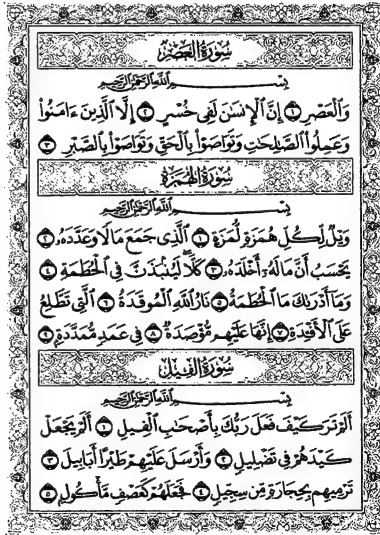 سُورَةُ العَصْرِ
بِسْمِ اللَّهِ الرَّحْمَٰنِ الرَّحِيمِ
وَالْعَصْرِ ١ إِنَّ الْإِنسَانَ لَفِي خُسْرٍ ٢ إِلَّا الَّذِينَ ءَامَنُوا
وَعَمِلُوا الصَّالِحَاتِ وَتَوَاصَوْا بِالْحَقِّ وَتَوَاصَوْا بِالصَّبْرِ ٣
سُورَةُ الهُمَزَةِ
بِسْمِ اللَّهِ الرَّحْمَٰنِ الرَّحِيمِ
وَيْلٌ لِّكُلِّ هُمَزَةٍ لُّمَزَةٍ ١ الَّذِي جَمَعَ مَالًا وَعَدَّدَهُ ٢
يَحْسَبُ أَنَّ مَالَهُ أَخْلَدَهُ ٣ كَلَّا لَيُنبَذَنَّ فِي الْحُطَمَةِ ٤
وَمَا أَدْرَاكَ مَا الْحُطَمَةُ ٥ نَارُ اللَّهِ الْمُوقَدَةُ ٦ الَّتِي تَطَّلِعُ
عَلَى الْأَفْئِدَةِ ٧ إِنَّهَا عَلَيْهِم مُّؤْصَدَةٌ ٨ فِي عَمَدٍ مُّمَدَّدَةٍ ٩
سُورَةُ الفِيلِ
بِسْمِ اللَّهِ الرَّحْمَٰنِ الرَّحِيمِ
أَلَمْ تَرَ كَيْفَ فَعَلَ رَبُّكَ بِأَصْحَابِ الْفِيلِ ١ أَلَمْ يَجْعَلْ
كَيْدَهُمْ فِي تَضْلِيلٍ ٢ وَأَرْسَلَ عَلَيْهِمْ طَيْرًا أَبَابِيلَ ٣
تَرْمِيهِم بِحِجَارَةٍ مِّن سِجِّيلٍ ٤ فَجَعَلَهُمْ كَعَصْفٍ مَّأْكُولٍ ٥